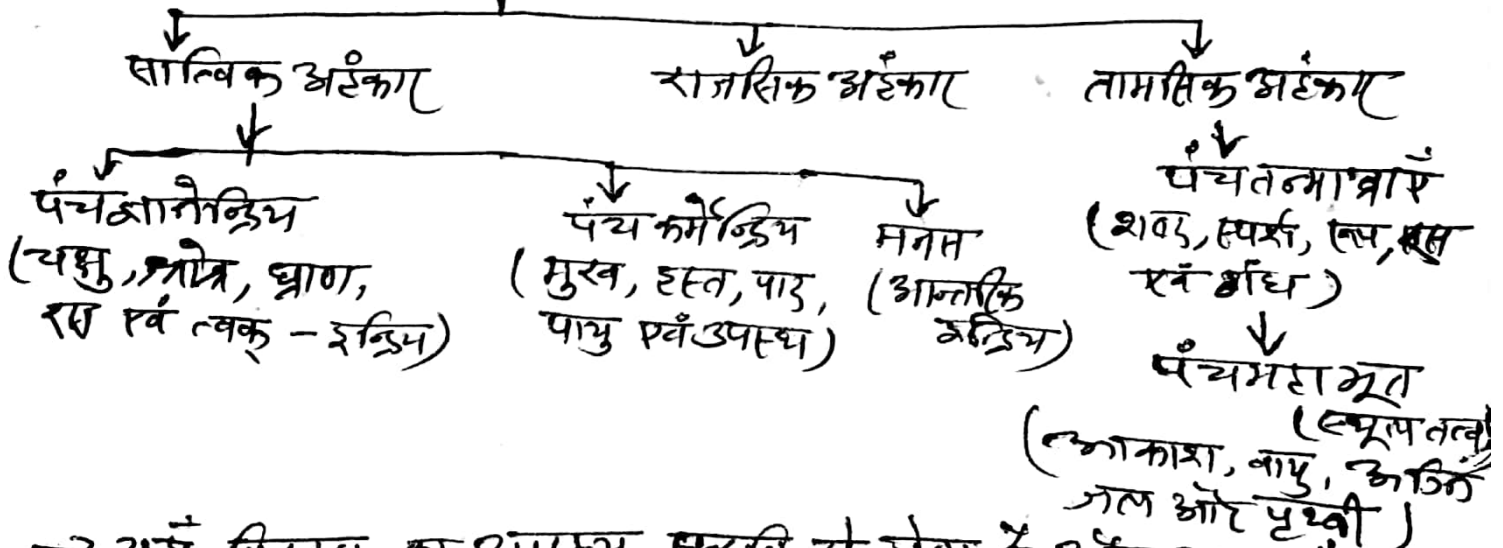 सात्विक अहंकार राजसिक अहंकार तामसिक अहंकार
पंचज्ञानेन्द्रिय
(चक्षु, श्रोत्र, घ्राण,
रस एवं त्वक् - इन्द्रिय)
पंच कर्मेन्द्रिय
(मुख, हस्त, पाद,
पायु एवं उपस्थ)
मनस
(आन्तरिक
इन्द्रिय)
पंचतन्मात्राएँ
(शब्द, स्पर्श, रूप, रस
एवं गंध)
पंचमहाभूत
(स्थूल तत्व)
(आकाश, वायु, अग्नि
जल और पृथ्वी)